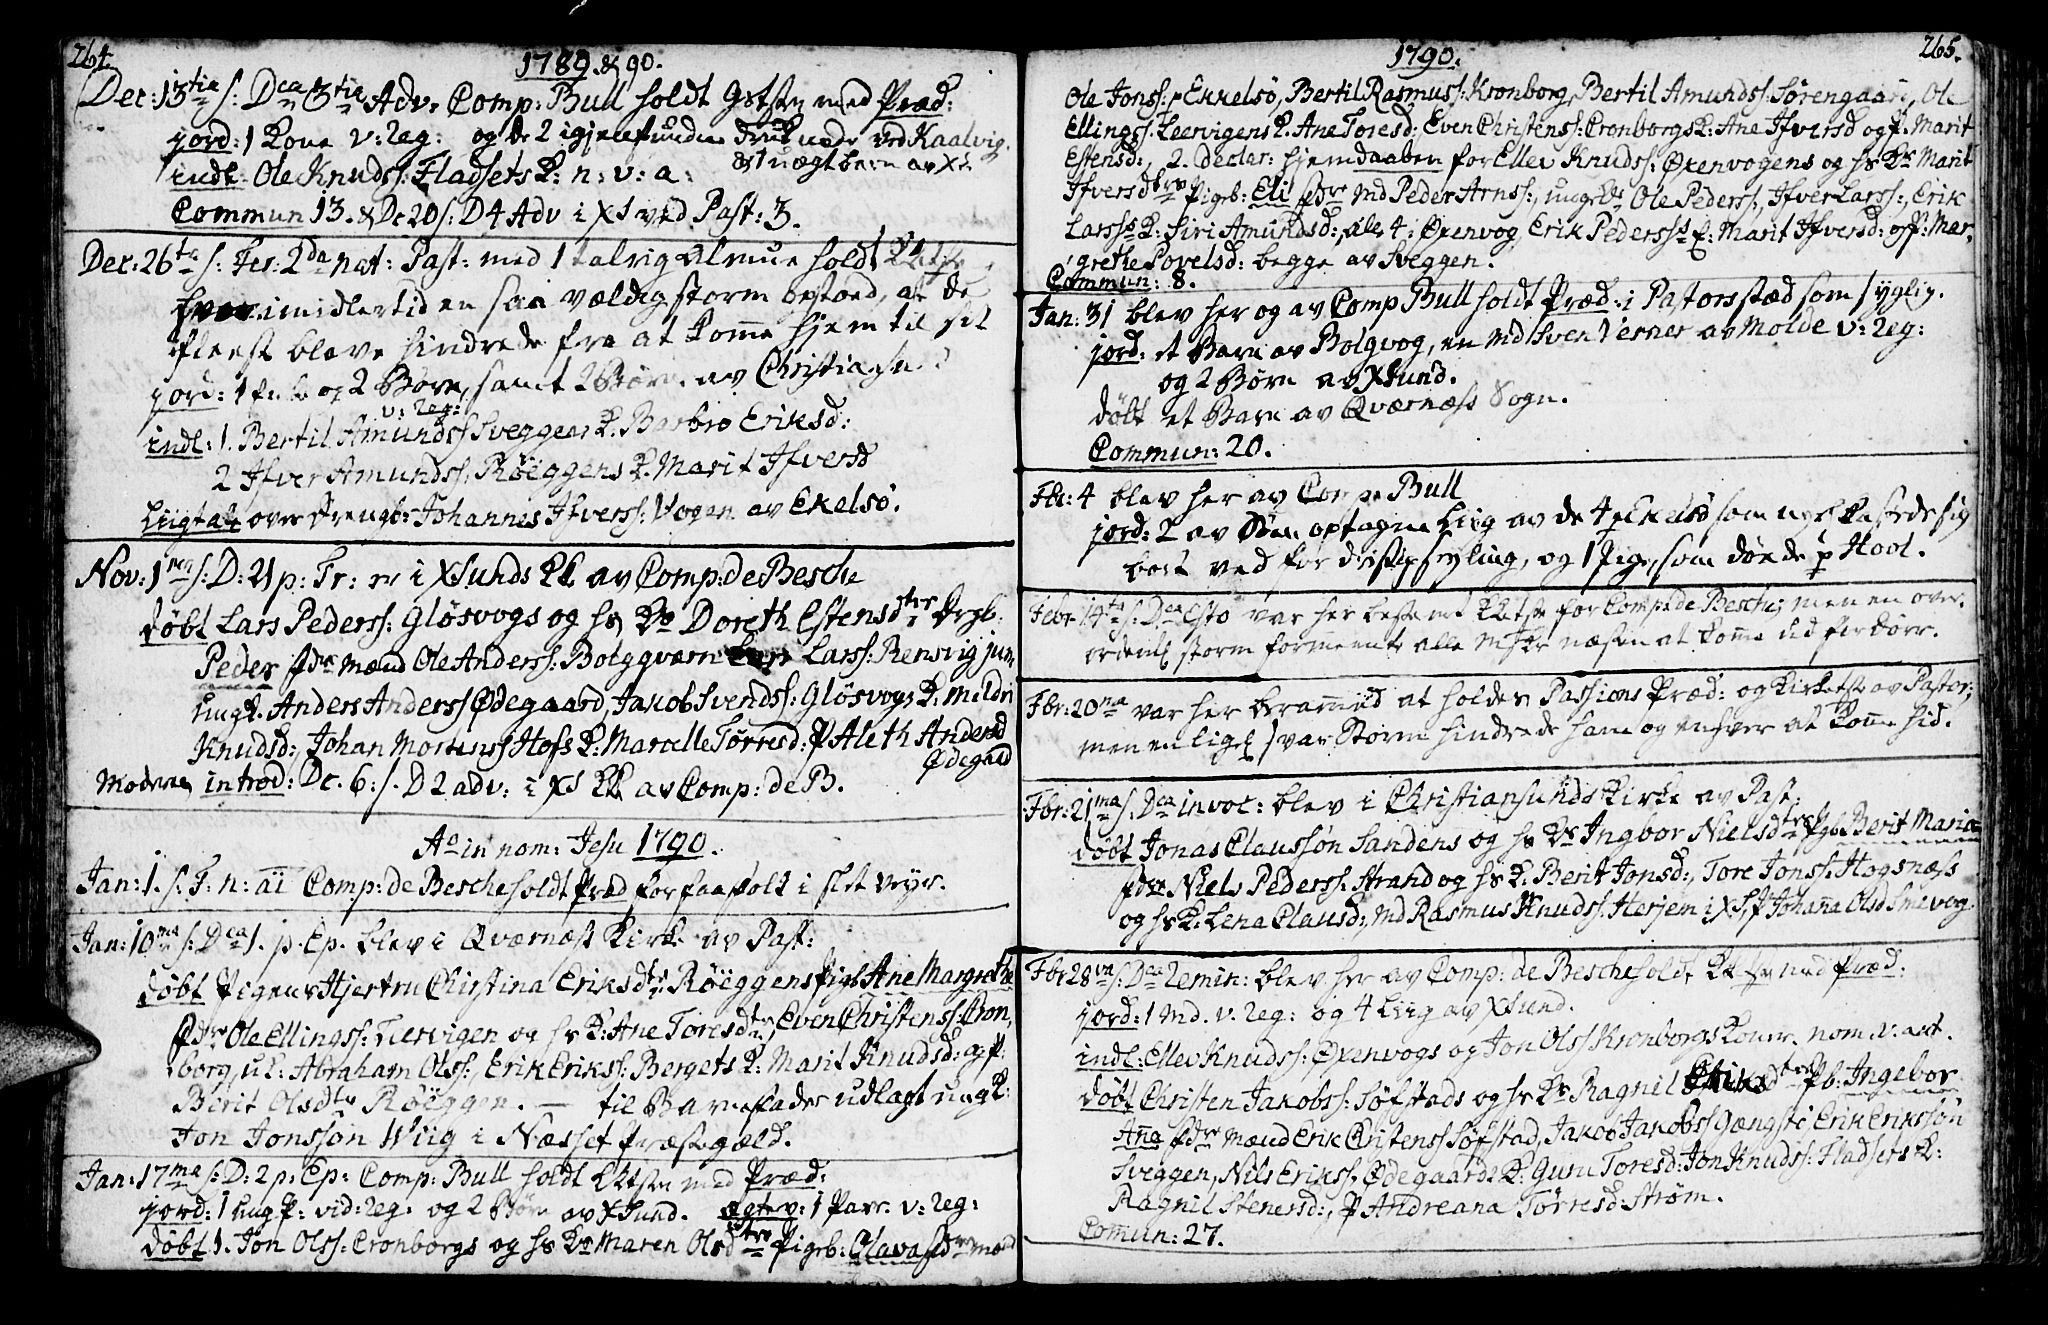 264.
1789. & 90.
Dec: 13tia s: Dca 3tia Adv. Comp: Bull holdt med Præd:
jord: 1 Kone v: reg: og de 2 igjenfundne ved Kaalvig.
& 1 uægt barn av Xs.
indl: Ole Knuds: Fladsets K: n: v: a:
Commun 13. & Dc 20 s: D 4 Adv i XS ved Past: 3.
Dec: 26ta s: Fer: 2da nat: Past: med 1 talrig Almue holdt
imidlertid en saa vældig storm opstoed, at de
fleest bleve hindrede fra at komme hjem til sit
jord: 1 og 2 Børn, samt 2 Børn av Christiansund
v: reg:
indl: 1. Bertil Amunds: Sveggens K. Barbro Eriksd:
2 Ifver Amunds: Röeggens K. Marit Ifversd
Liigtale over Johannes Ifvers: Vogen av Ekelsö.
Nov: 1ma s: D: 21 p: Tr: er i XSunds Kk av Comp: de Besche
döbt Lars Peders: Glösvogs og hs Ko Doreth Estensdtrs Drgb.
Peder fdre mænd Ole Anders: Bolggværn Lars: Rensvig jun
ungk. Anders Anders Ødegaard, Jakob Svends: Glösvogs K: Mildri
Knudsd:, Johan Mortens Hofs K: Marcelle Törresd: P Aleth Andersd
Ødegaard
Moderen introd: Dc. 6: s. D 2 adv: i XS Kk av Comp: de B.
Ao in nom: Jesu 1790.
Jan: 1. s: F: n: ai Comp: de Besche holdt Præd for faa folk i slet veyr.
Jan: 10ma s: Dca 1. p. Ep. blev i Qværnæss Kirke av Past:
döbt Pigens Hjertru Christina Eriksdtrs Röeggens Pigb Ane Margrethe
fdre Ole Ellings: Leervigen og hs K: Ane Toresdtr, Even Christens: Cron,
borg, uk: Abraham Ols:, Erik Eriks: Bergets K: Marit Knudsd: og f:
Birit Olsdtr Röeggen. — til Barnefader udlagt ungk:
Jon Jonssön Wiig i Næsset Præstegæld.
Jan: 17ma s: D: 2 p: Ep: Comp: Bull holdt med Præd:
jord: 1 ung P: vid: reg: og 2 Börn av XSund. ægtev: 1 Parr v: reg:
döbt 1. Jon Ols: Cronborgs og hs Ko Maren Olsdtrs Pigeb: Olava fdre mænd
265.
1790.
Ole Jons: p Ekkelsö, Bertil Rasmus: Kronborg, Bertil Amunds: Sörengaard, Ole
Ellings: Leervigens K. Ane Toresd: Even Christens: Cronborgs K: Ane Ifversd og P. Marit
Estensd:, 2. declar: hjemdaaben for Ellev Knuds: Øxenvogens og hs Ks Marit
Ifversdtrs Pigeb: Eli fdre md Peder Arns:, ungk Ole Peders:, Ifver Lars:, Erik
Lars: K: Siri Amundsd:, alle 4: Øxenvog, Erik Peders: K: Marit Ifversd: og P: Mar,
grethe Povelsd: begge av Sveggen.
Commun: 8.
Jan: 31 blev her og av Comp Bull holdt Præd: i Pastors stæd som syglig.
jord: et Barn av Bolgvog, en md Sven Verner av Molde v: reg:
og 2 Börn av XSund.
döbt et Barn av Qværnæss Sogn.
Commun: 20.
Fbr: 4 blev her av Comp Bull
jord: 2 av Söen optagne Liig av de 4 p Ekelsö som
bort ved for dristig seyling, og 1 Pige, som döede p Hool.
Febr: 14ta s: Dca Esto var her bestemt for Comp: de Besche; men en over,
ordentl storm formeente alle næsten at komme ud for dörr.
Fbr: 20ma var her berammed at holdes Passions Præd: og av Pastor,
men en ligel svar Storm hindrede ham og enhver at komme hid.
Fbr: 21ma s: Dca invoc: blev i Christiansunds Kirke av Past:
döbt Jonas Claussön Sandens og hs Ks Ingbor Nielsdtrs Pgb Berit Maria
fdre Niels Peders: Strand og hs K. Berit Jonsd:, Tore Jons: Hogsnæss
og hs K: Lena Clausd:, md Rasmus Knuds: Herjem i XS, P Johanna Olsd Smevog.
Fbr 28va s: Dca Remin: blev her av Comp: de Besche holdt med Præd:
jord: 1 md. v. reg: og 4 Liig av XSund.
indl: Ellev Knuds: Øxenvogs og Jon Ols Kronborgs Koner. nom. v. act.
döbt Christen Jakobs: Söfstads og hs Ks Ragnil Eriksdtrs Pb: Ingebor
Anna fdre mænd Erik Christens Söfstad, Jakob Jakobs Gængstö Erik Erikssön
Sveggen, Nils Eriks: Ødegaards K: Guru Toresd: Jon Knuds: Fladsets K:
Ragnil Stenersd:, P Andreana Törresd Ström.
Comun: 27.